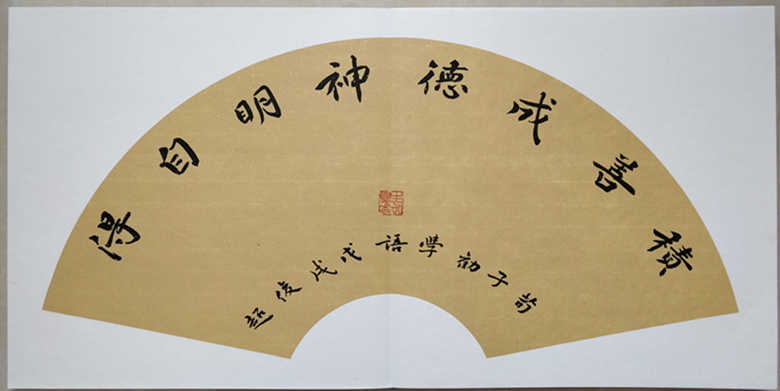 積善成德神明自得
荀子勸學語戊戌俊超